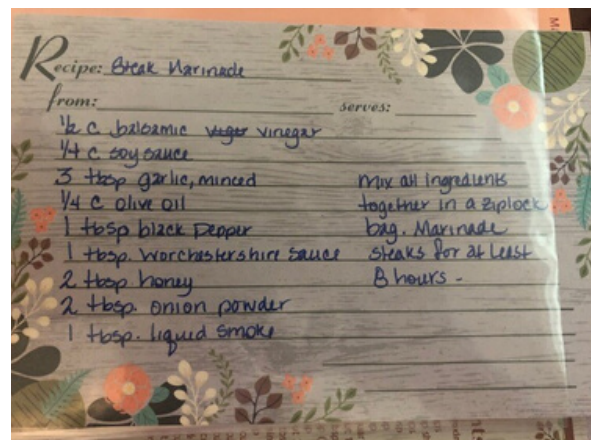 Recipe: Steak Marinade
from:
serves:
1/2 c balsamic vinegar
1/4 c soy sauce
3 tbsp garlic, minced
1/4 c olive oil
1 tbsp black pepper
1 tbsp. worchastershire sauce
2 tbsp honey
2 tbsp. onion powder
1 tbsp. liquid smoke
mix all ingredients
together in a ziplock
bag. Marinade
steaks for at least
8 hours -